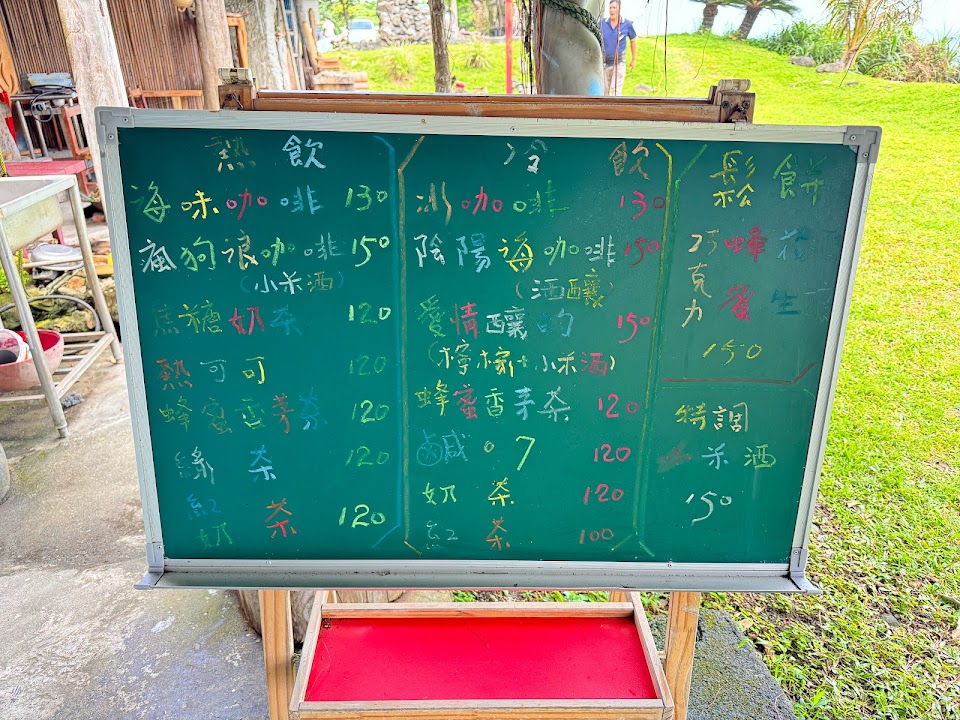 熱 飲
海味咖啡 130
瘋狗浪咖啡 150
(小米酒)
焦糖奶茶 120
熱可可 120
蜂蜜香茅茶 120
綠 茶 120
紅
奶 茶 120
冷 飲
冰咖啡 130
陰陽海咖啡 150
(酒釀)
愛情釀的 150
(檸檬+小米酒)
蜂蜜香茅茶 120
鹹。7 120
奶 茶 120
紅 茶 100
鬆餅
巧克力 蜂蜜 花生
150
特調
米酒
150